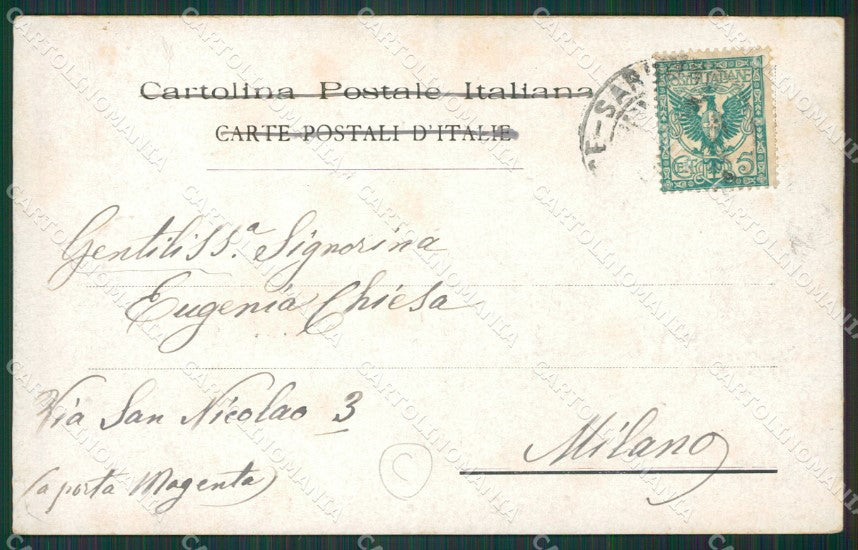 Cartolina Postale Italiana
CARTE POSTALI D'ITALIE
POSTE ITALIANE
5
Gentiliss.ª Signorina
Eugenia Chiesa
Via San Nicolao 3
(a porta Magenta)
Milano
C
CARTOLINOMANIA